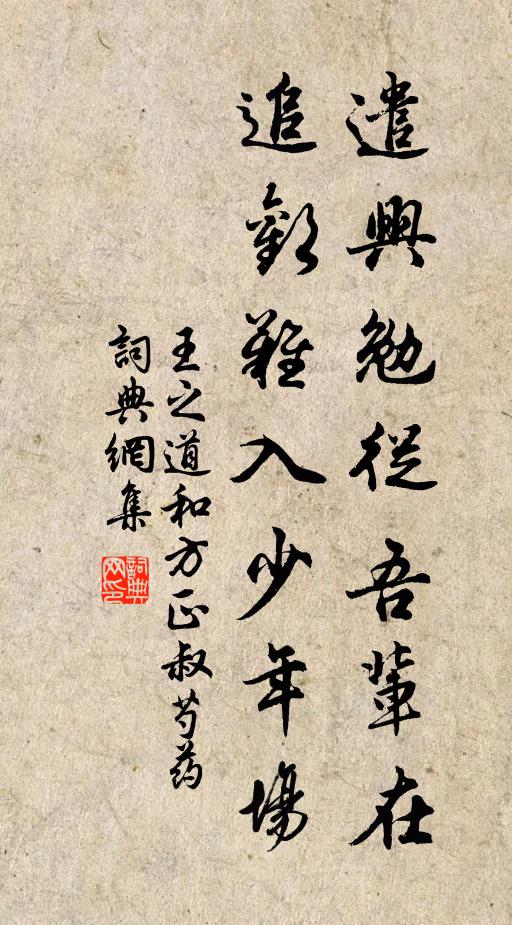 遣興勉從吾輩在
追歡難入少年場
王之道和方正叔芍药
詞典網集
詞典网印